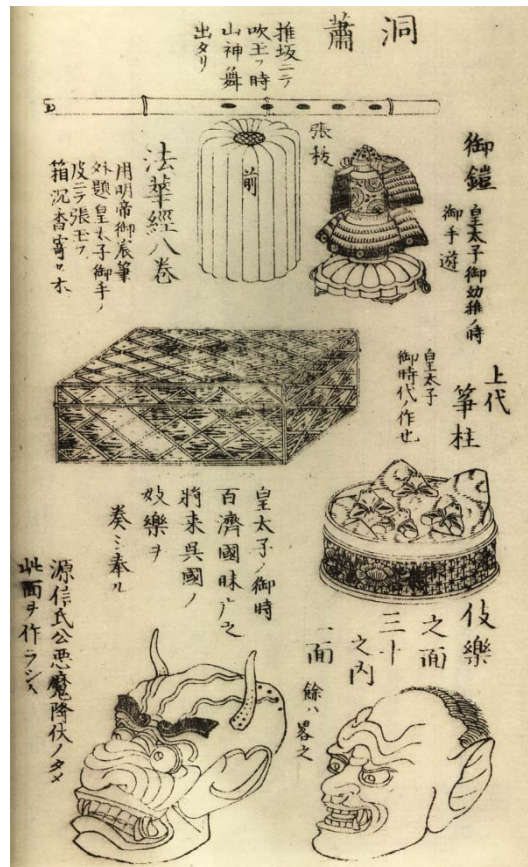 洞簫
推坂ニテ
吹玉フ時
山神ノ舞
出タリ
御鎧
皇太子御幼稚ノ時
御手遊
張抜
前
法華經八巻
用明帝御宸筆
外題皇太子御手ノ
皮ニテ張玉フ
箱沉香寄セ木
上代
箏柱
皇太子
御時代ノ作也
皇太子ノ御時
百濟國味广之
將来呉國ノ
妓樂ヲ
奏シ奉ル
伎樂
之面
三十
之内
二面
餘ハ畧之
源信氏公悪魔降伏ノタメ
此面ヲ作ラシム